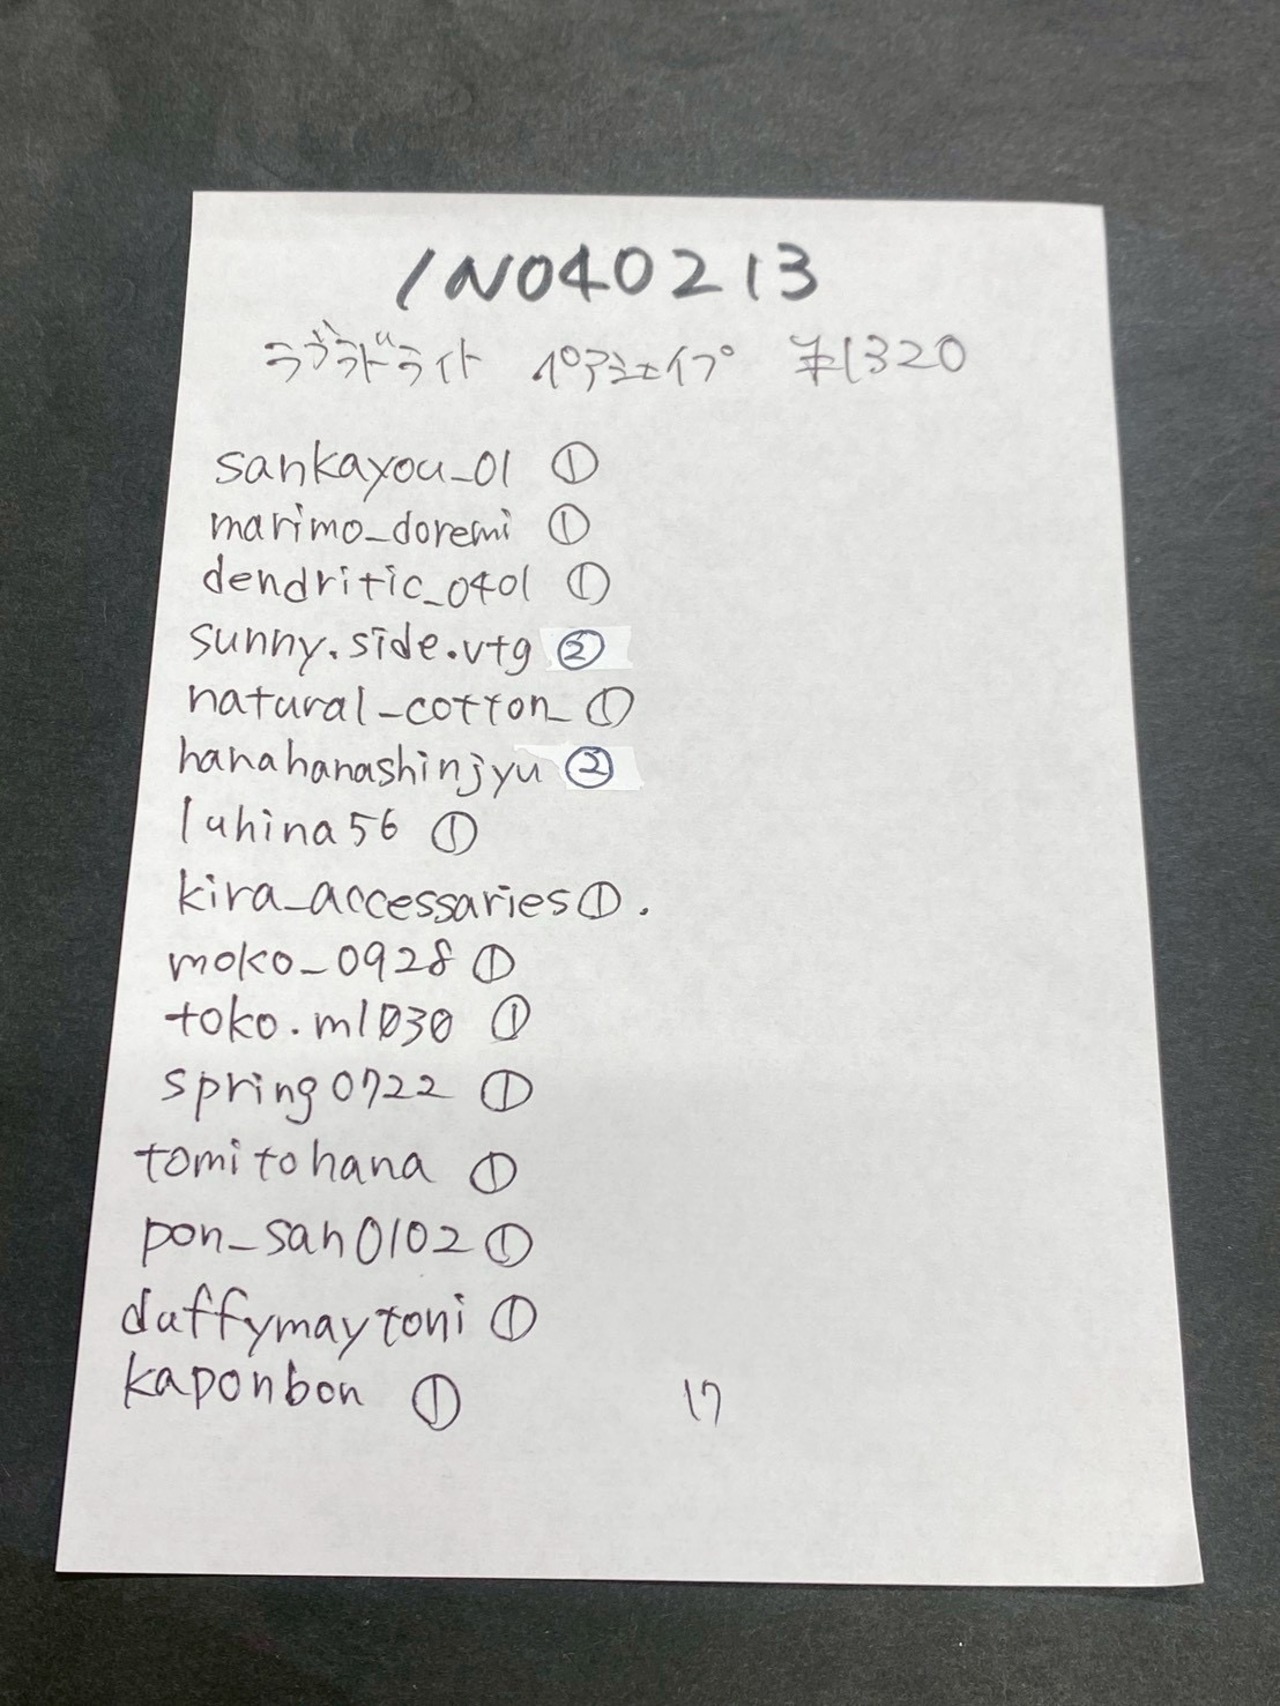 INO40213
ラブラドライト ペアシェイプ ¥1320
sankayou_01 ①
marimo_doremi ①
dendritic_0401 ①
sunny.side.vtg ②
natural_cotton_ ①
hanahanashinjyu ②
luhina56 ①
kira_accessaries ① .
moko_0928 ①
toko.m1030 ①
spring0722 ①
tomitohana ①
pon_san0102 ①
duffymaytoni ①
kaponbon ① 17